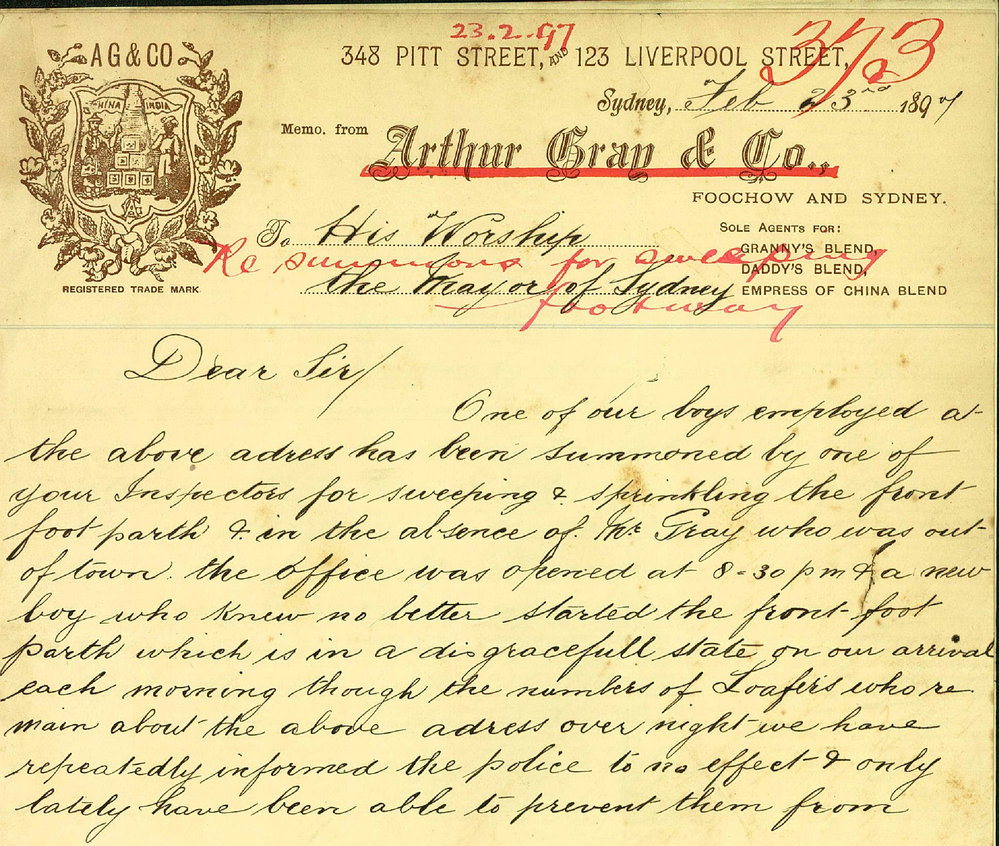 23.2.97
373
AG & CO
348 PITT STREET, AND 123 LIVERPOOL STREET,
CHINA INDIA
Sydney, Feb 23rd 1897
Memo. from
Arthur Gray & Co.,
FOOCHOW AND SYDNEY.
To His Worship
the Mayor of Sydney
Re summons for sweeping
footway
SOLE AGENTS FOR:
GRANNY'S BLEND,
DADDY'S BLEND,
EMPRESS OF CHINA BLEND
REGISTERED TRADE MARK
Dear Sir/
One of our boys employed at
the above adress has been summoned by one of
your Inspectors for sweeping & sprinkling the front
foot parth & in the absence of Mr Gray who was out
of town. the office was opened at 8-30 pm & a new
boy who knew no better started the front foot
parth which is in a disgracefull state on our arrival
each morning though the numbers of Loafers who re
main about the above adress over night we have
repeatedly informed the police to no effect & only
lately have been able to prevent them from